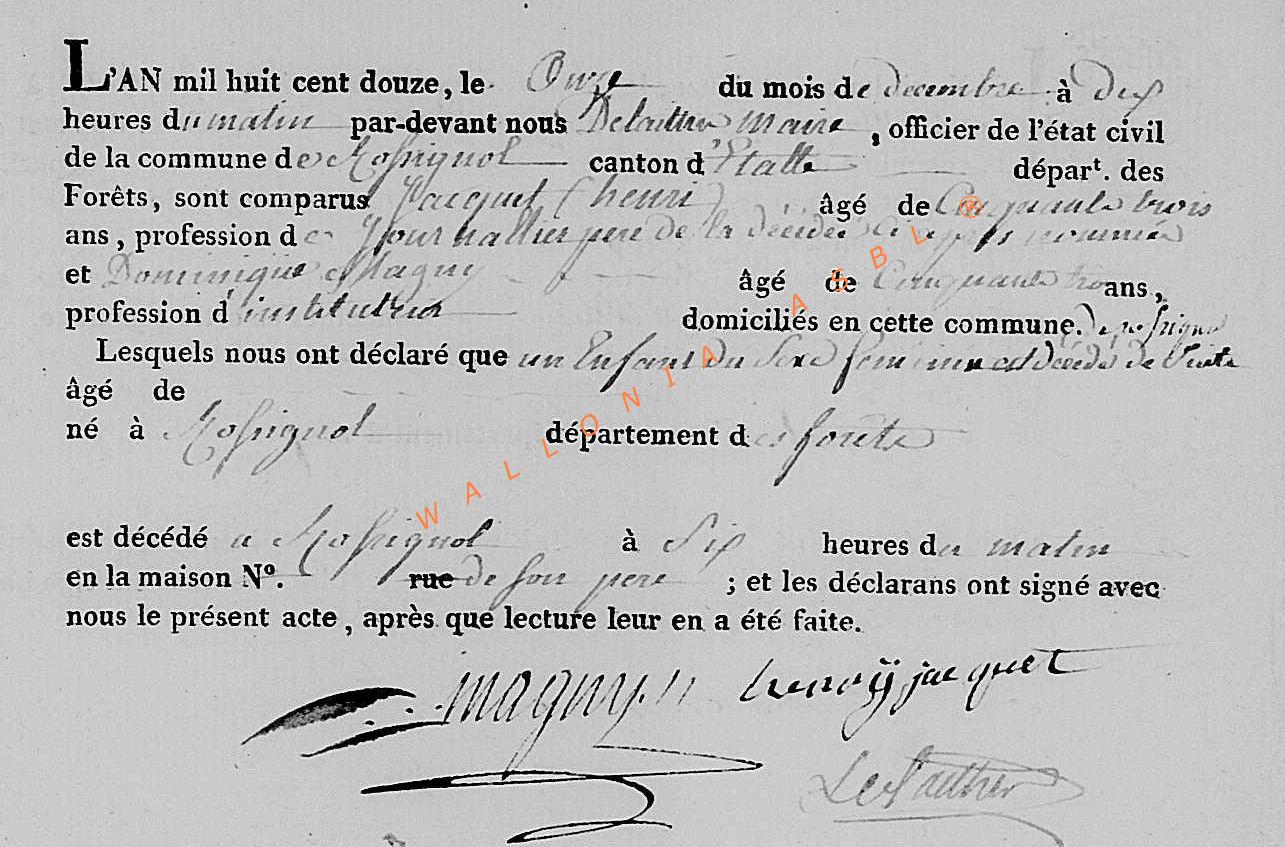 L'AN mil huit cent douze, le Onze du mois de decembre à dix
heures du matin par-devant nous Delauttre Maire, officier de l'état civil
de la commune de Rossignol canton d'Etalle départ. des
Forêts, sont comparus Jacquet henri âgé de Cinquante trois
ans, profession de Journallier pere de la décédée ci après nommée
et Dominique Magny âgé de Cinquante trois ans,
profession d'instituteur domiciliés en cette commune. de rossignol
Lesquels nous ont déclaré que un Enfant du Sexe feminin est décédé de
âgé de
né à Rossignol département des forêts
est décédé a Rossignol à Six heures du matin
en la maison N°. rue de son pere ; et les déclarans ont signé avec
nous le présent acte, après que lecture leur en a été faite.
magny henry jacquet
WALLONIA ASBL ®